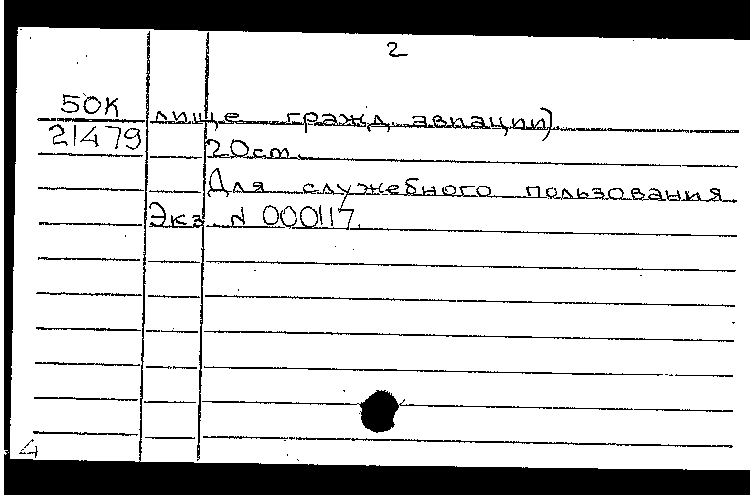 2
50К лище гражд. авиации).
21479 20см.
Для служебного пользования
Экз. N 000117.
4